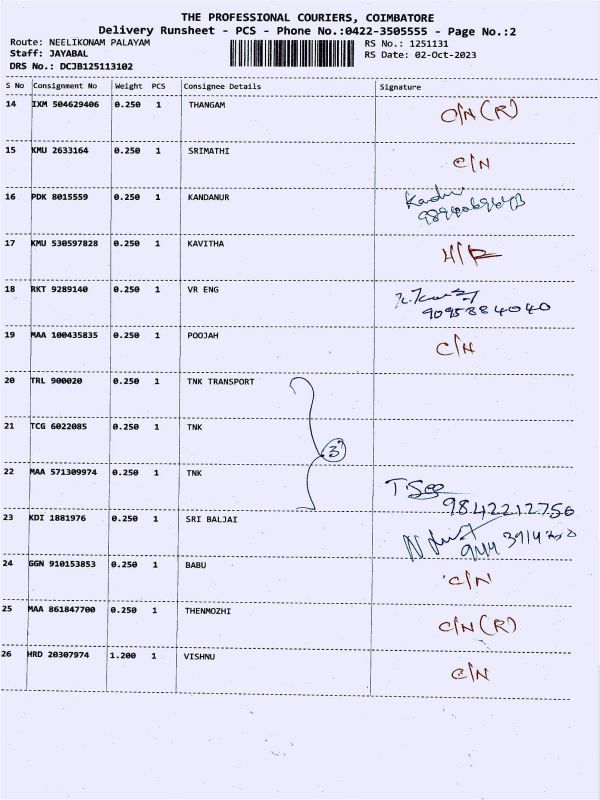 THE PROFESSIONAL COURIERS, COIMBATORE
Delivery Runsheet - PCS - Phone No.:0422-3505555 - Page No.:2
Route: NEELIKONAM PALAYAM RS No.: 1251131
Staff: JAYABAL RS Date: 02-Oct-2023
DRS No.: DCJB125113102
S No Consignment No Weight PCS Consignee Details Signature
14 IXM 504629406 0.250 1 THANGAM C/N (R)
15 KMU 2633164 0.250 1 SRIMATHI C/N
16 PDK 8015559 0.250 1 KANDANUR
17 KMU 530597828 0.250 1 KAVITHA
18 RKT 9289140 0.250 1 VR ENG
9095884040
19 MAA 100435835 0.250 1 POOJAH C/N
20 TRL 900020 0.250 1 TNK TRANSPORT
21 TCG 6022085 0.250 1 TNK
3
22 MAA 571309974 0.250 1 TNK
9842212756
23 KDI 1881976 0.250 1 SRI BALJAI
24 GGN 910153853 0.250 1 BABU C/N
25 MAA 861847700 0.250 1 THENMOZHI C/N (R)
26 HRD 20307974 1.200 1 VISHNU C/N